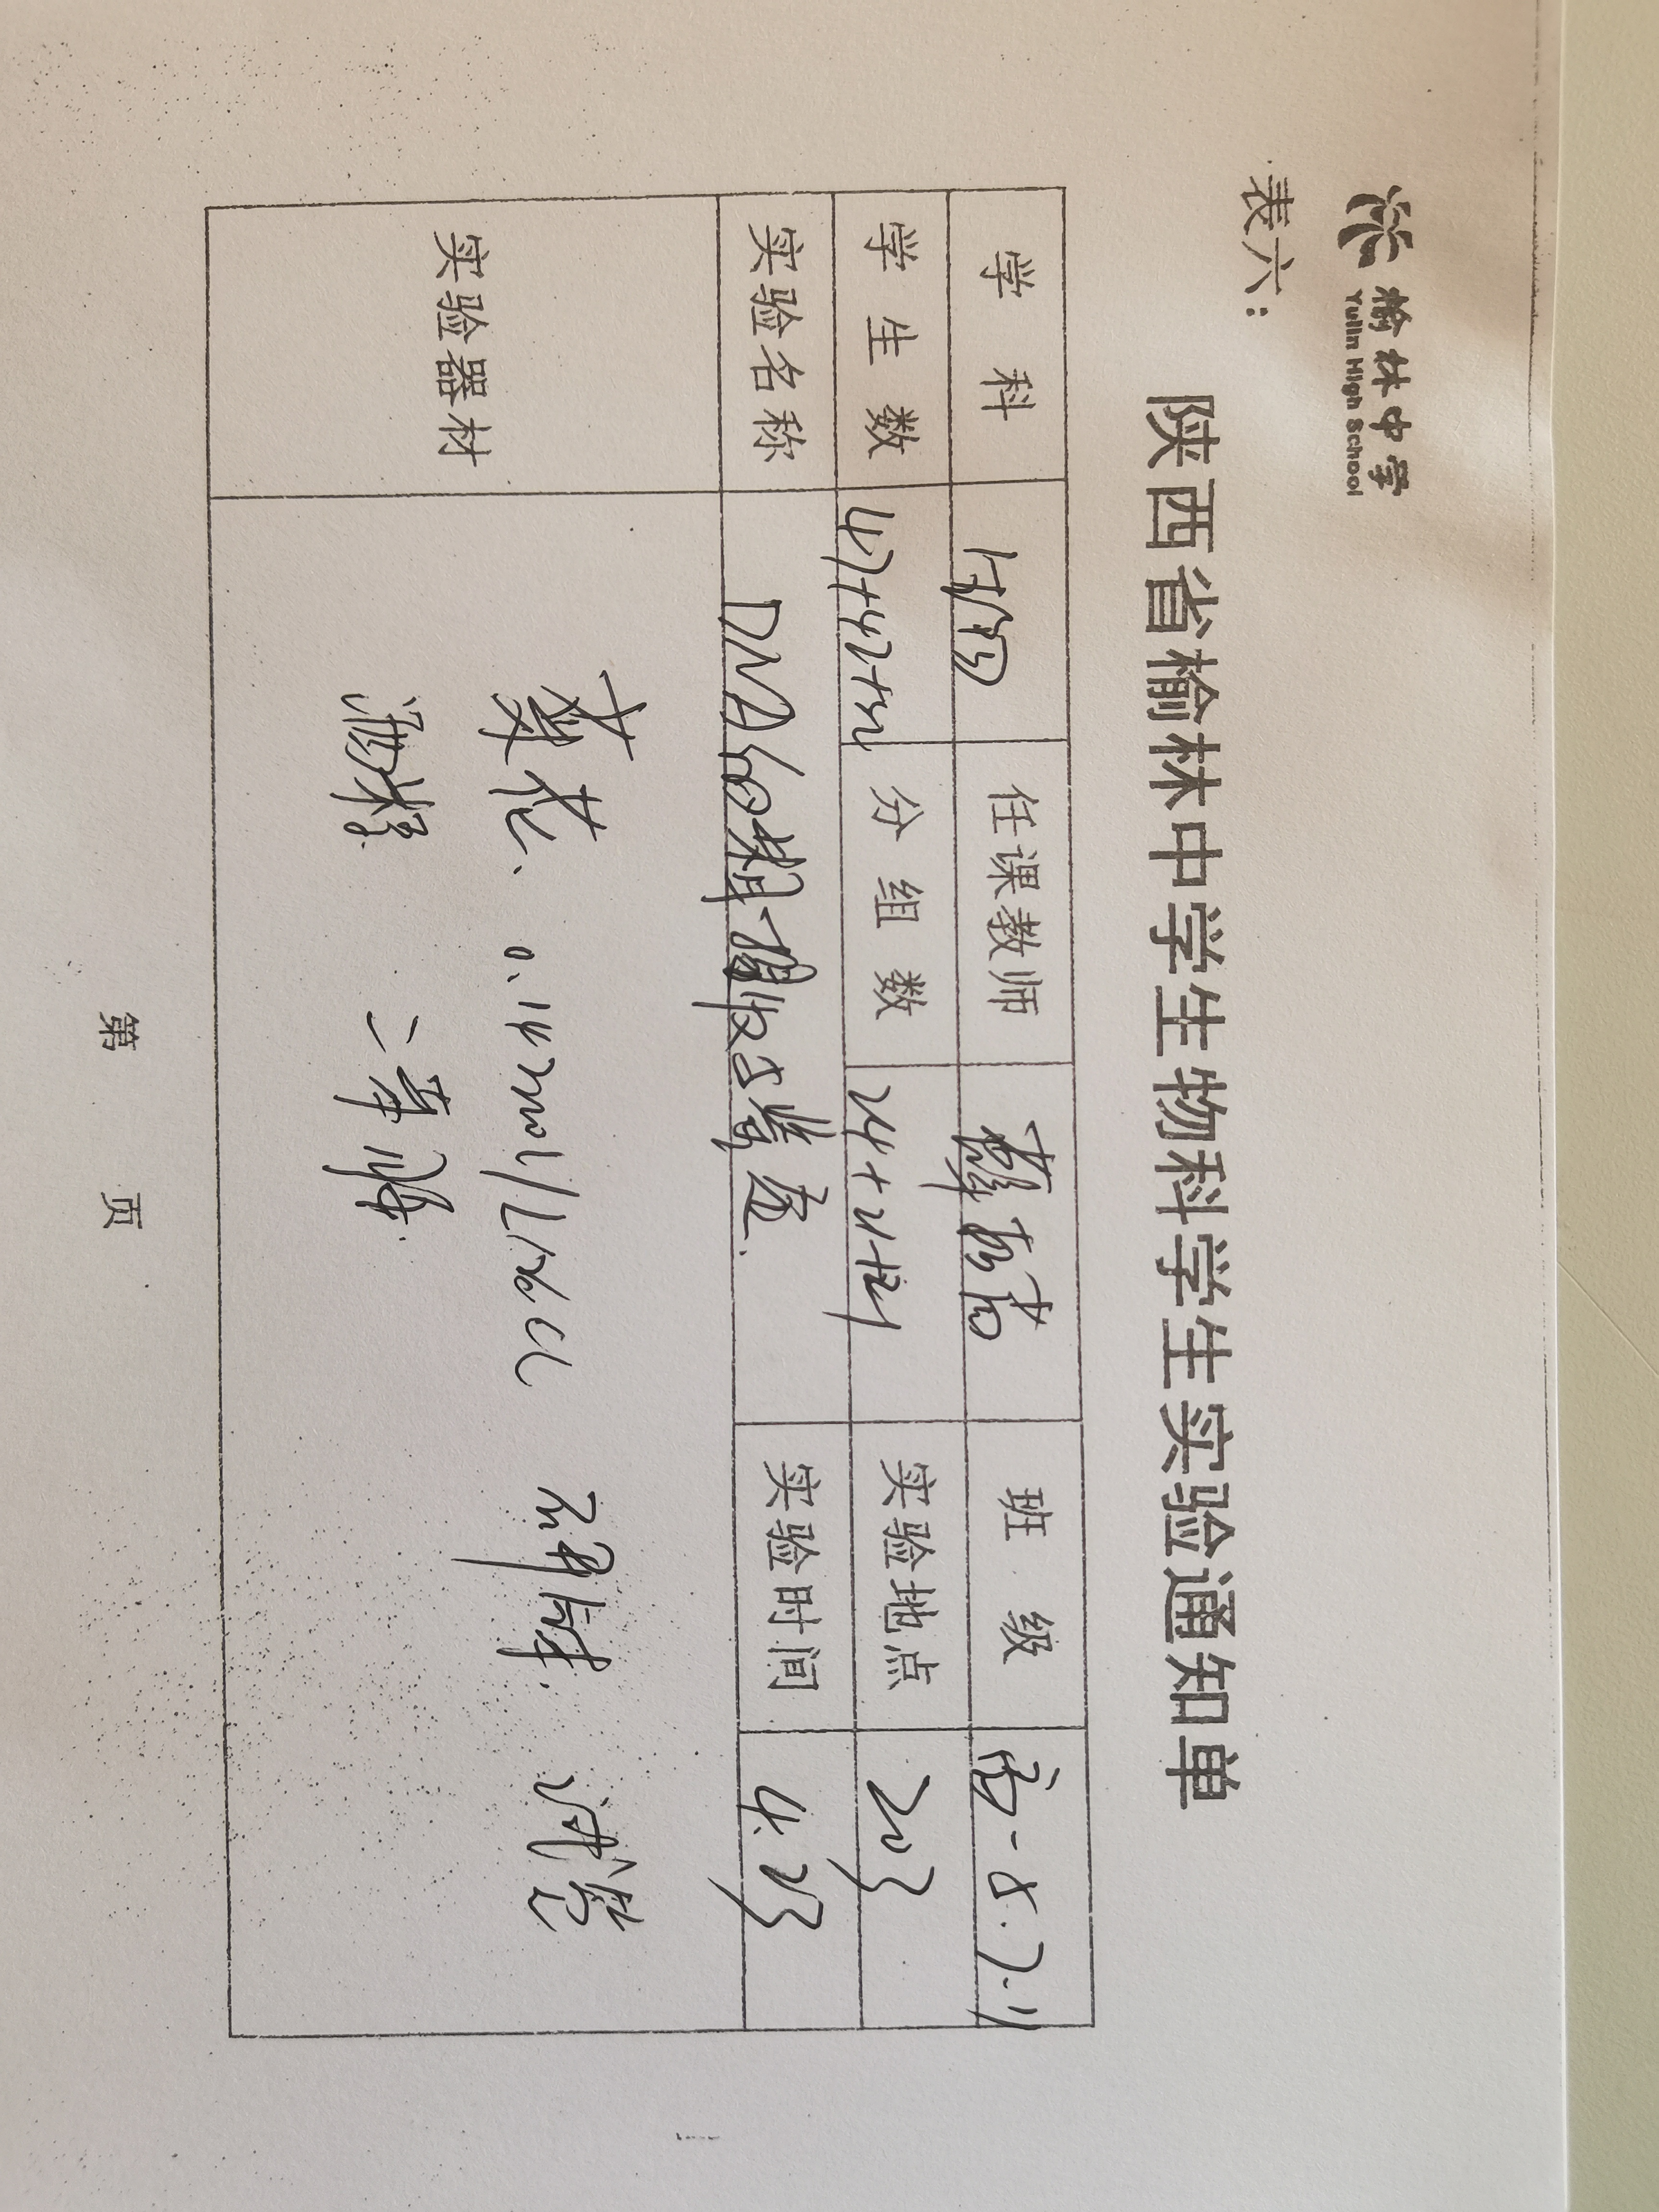 榆林中学
Yulin High School
表六：
陕西省榆林中学生物科学生实验通知单
学 科 生物 任课教师 班 级 高一 8.7.11
学 生 数 分 组 数 实验地点 203
实验名称 DNA的粗提取与鉴定. 实验时间 4.23
实验器材 菜花、0.14mol/L NaCl 研钵. 试管
酒精 二苯胺.
第 页